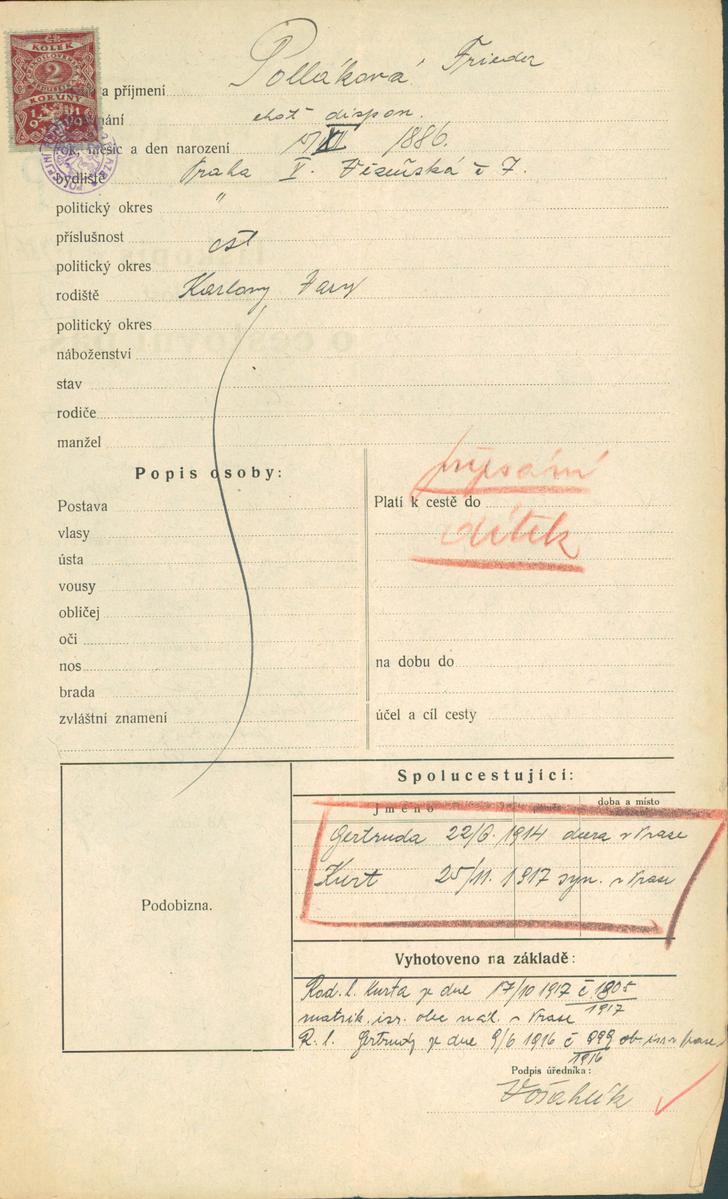 KOLEK
2
KORUNY
Polláková Frieder
a příjmení
chot dispon.
rok, měsíc a den narození 1886.
bydliště Praha V. Vězeňská č 7.
politický okres "
příslušnost čsl
politický okres
rodiště Karlovy Vary
politický okres
náboženství
stav
rodiče
manžel
Popis osoby:
Postava
vlasy
ústa
vousy
obličej
oči
nos
brada
zvláštní znamení
Platí k cestě do
dítek
na dobu do
účel a cíl cesty
Podobizna.
Spolucestující:
Jméno doba a místo
Gertruda 22/6. 1914 dcera v Praze
Kurt 25/11. 1917 syn. v Praze
Vyhotoveno na základě:
Rod. l. Kurta ze dne 17/10 1917 č 1805/1917
matrik. isr. obec nář. v Praze
R. l. Gertrudy ze dne 9/6 1916 č 999/1916 ob. isr. v Praze
Podpis úředníka: